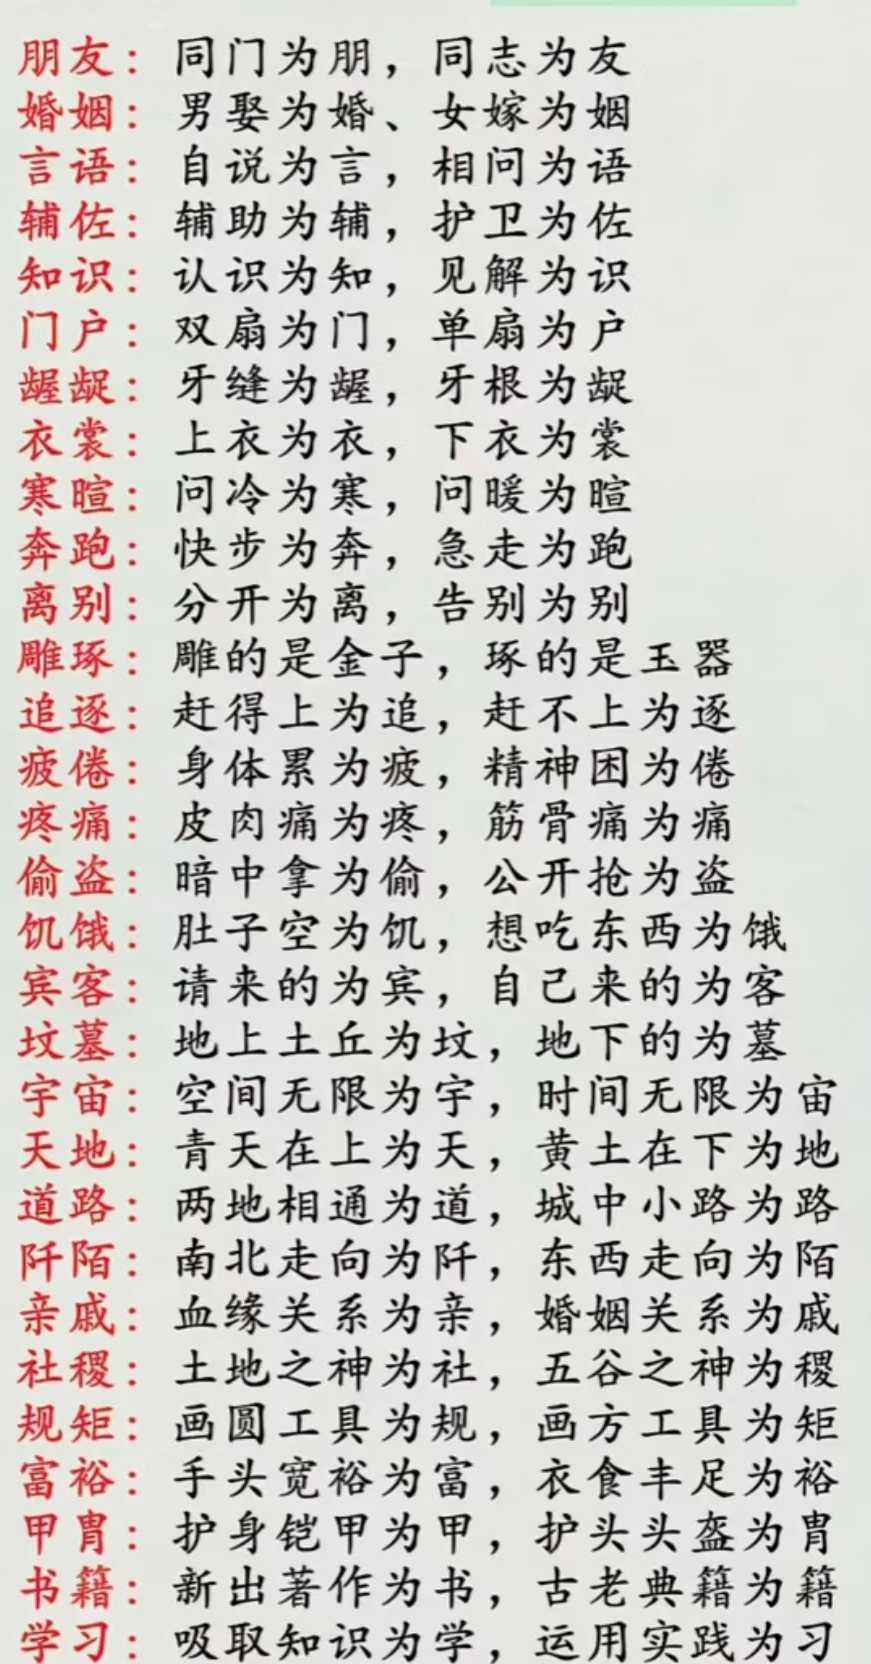 朋友：同门为朋，同志为友
婚姻：男娶为婚、女嫁为姻
言语：自说为言，相问为语
辅佐：辅助为辅，护卫为佐
知识：认识为知，见解为识
门户：双扇为门，单扇为户
龌龊：牙缝为龌，牙根为龊
衣裳：上衣为衣，下衣为裳
寒暄：问冷为寒，问暖为暄
奔跑：快步为奔，急走为跑
离别：分开为离，告别为别
雕琢：雕的是金子，琢的是玉器
追逐：赶得上为追，赶不上为逐
疲倦：身体累为疲，精神困为倦
疼痛：皮肉痛为疼，筋骨痛为痛
偷盗：暗中拿为偷，公开抢为盗
饥饿：肚子空为饥，想吃东西为饿
宾客：请来的为宾，自己来的为客
坟墓：地上土丘为坟，地下的为墓
宇宙：空间无限为宇，时间无限为宙
天地：青天在上为天，黄土在下为地
道路：两地相通为道，城中小路为路
阡陌：南北走向为阡，东西走向为陌
亲戚：血缘关系为亲，婚姻关系为戚
社稷：土地之神为社，五谷之神为稷
规矩：画圆工具为规，画方工具为矩
富裕：手头宽裕为富，衣食丰足为裕
甲胄：护身铠甲为甲，护头头盔为胄
书籍：新出著作为书，古老典籍为籍
学习：吸取知识为学，运用实践为习